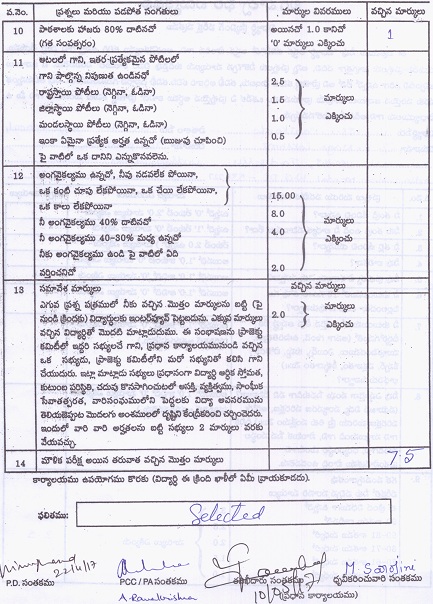 వ.నెం. ప్రశ్నలు మరియు పడపోత సంగతులు మార్కుల వివరములు వచ్చిన మార్కులు
10 పాఠశాలకు హాజరు 80% దాటినచో అయినచో 1.0 కానిచో 1
(గత సంవత్సరం) '0' మార్కులు ఎక్కించు
11 ఆటలలో గాని, ఇతర ప్రత్యేకమైన పోటీలలో
గాని పాల్గొన్న నిపుణుత ఉండినచో
రాష్ట్రస్థాయి పోటీలు (నెగ్గినా, ఓడినా) 2.5
జిల్లాస్థాయి పోటీలు (నెగ్గినా, ఓడినా) 1.5 మార్కులు
మండలస్థాయి పోటీలు (నెగ్గినా, ఓడినా) 1.0 ఎక్కించు
ఇంకా ఏమైనా ప్రత్యేక అర్హత ఉన్నచో (ఋజువు చూపించి) 0.5
పై వాటిలో ఒక దానిని ఎన్నుకొనవలెను.
12 అంగవైకల్యము ఉన్నచో, నీవు నడవలేక పోయినా,
ఒక కంటి చూపు లేకపోయినా, ఒక చేయి లేకపోయినా,
ఒక కాలు లేకపోయినా 15.00
నీ అంగవైకల్యము 40% దాటినచో 8.0 మార్కులు
నీ అంగవైకల్యము 40-30% మధ్య ఉన్నచో 4.0 ఎక్కించు
నీకు అంగవైకల్యము ఉండి పై వాటిలో ఏది
వర్తించనిచో 2.0
13 సమావేశ మార్కులు వచ్చిన మార్కులు
ఎగువ ప్రశ్న పత్రములో నీకు వచ్చిన మొత్తం మార్కులను బట్టి (పై
నుండి క్రిందకు) విద్యార్థులకు ఇంటర్వ్యూవ్ పెట్టబడును. ఎక్కువ మార్కులు 2.0 మార్కులు
వచ్చిన విద్యార్థితో మొదటి మాట్లాడుదుము. ఈ సంభాషణను ప్రాజెక్టు ఎక్కించు
కమిటీలో ఇద్దరి సభ్యులచే గాని, ప్రధాన కార్యాలయమునుండి వచ్చిన
ఒక సభ్యుడు, ప్రాజెక్టు కమిటీలోని మరో సభ్యునితో కలిసి గాని
చేయుదురు. ఇట్లా మాట్లాడు సభ్యులు ప్రధానంగా విద్యార్థి ఆర్థిక స్తోమత,
కుటుంబ పరిస్థితి, చదువు కొనసాగించుటలో ఆసక్తి, వ్యక్తిత్వము, సాంఘిక
సేవాతత్పరత, వారిసంఘములోని పెద్దలకు విద్యా అవసరమును
తెలియజెప్పుట మొదలగు అంశములలో దృష్టిని కేంద్రీకరించి చర్చించెదరు.
ఇందులో వారి వారి అర్హతలను బట్టి సభ్యులు 2 మార్కులు వరకు
వేయవచ్చు.
14 మౌళిక పరీక్ష అయిన తరువాత వచ్చిన మొత్తం మార్కులు 7.5
కార్యాలయము ఉపయోగము కొరకు (విద్యార్థి ఈ క్రింది ఖాళీలో ఏమీ వ్రాయకూడదు).
ఫలితము: Selected
22/4/17 M. Sarojini
P.D. సంతకము PCC / PA సంతకము తణిఖీదారు సంతకము ధృవీకరించువారి సంతకము
(ప్రధాన కార్యాలయము)